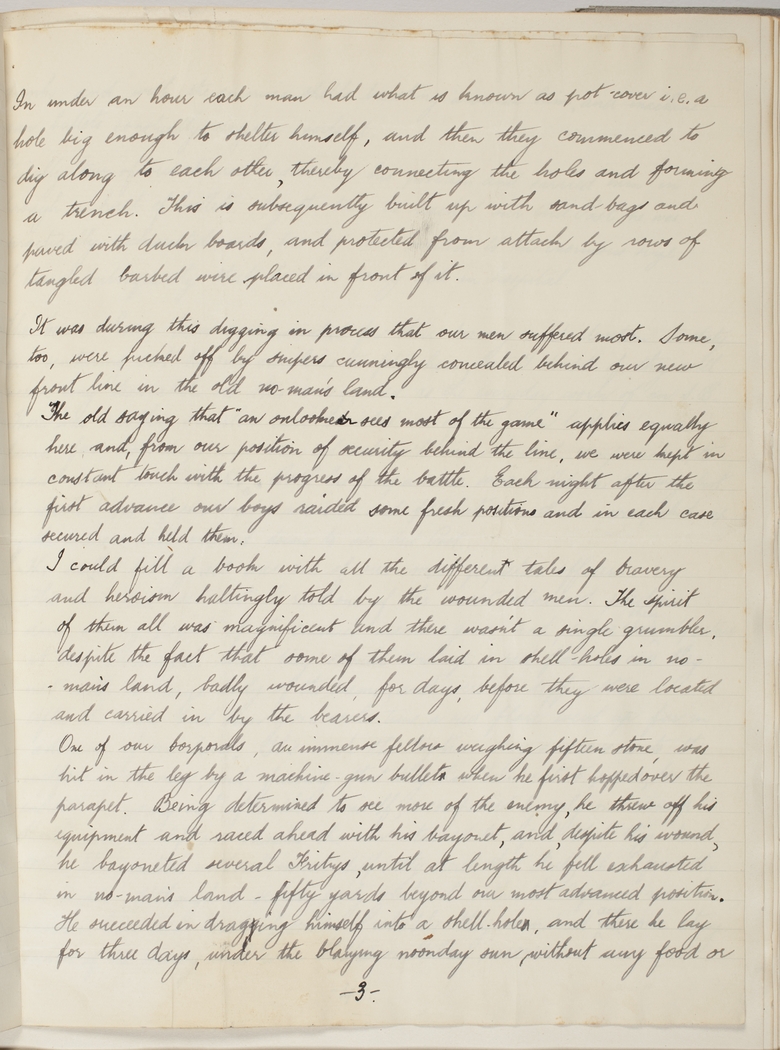 In under an hour each man had what is known as pot-cover i.e. a
hole big enough to shelter himself, and then they commenced to
dig along to each other, thereby connecting the holes and forming
a trench. This is subsequently built up with sand bags and
paved with duck boards, and protected from attack by rows of
tangled barbed wire placed in front of it.
It was during this digging in process that our men suffered most. Some,
too, were picked off by snipers cunningly concealed behind our new
front line in the old no-man's land.
The old saying that "an onlooker sees most of the game" applies equally
here and, from our position of security behind the line, we were kept in
constant touch with the progress of the battle. Each night after the
first advance our boys raided some fresh positions and in each case
secured and held them.
I could fill a book with all the different tales of bravery
and heroism haltingly told by the wounded men. The spirit
of them all was magnificent and there wasn't a single grumbler,
despite the fact that some of them laid in shell-holes in no-
-man's land, badly wounded, for days, before they were located
and carried in by the bearers.
One of our corporals, an immense fellow weighing fifteen stone, was
hit in the leg by a machine-gun bullet when he first hopped over the
parapet. Being determined to see more of the enemy, he threw off his
equipment and raced ahead with his bayonet, and, despite his wound,
he bayoneted several Fritzs, until at length he fell exhausted
in no-man's land - fifty yards beyond our most advanced position.
He succeeded in dragging himself into a shell-hole, and there he lay
for three days, under the blazing noonday sun, without any food or
-3-